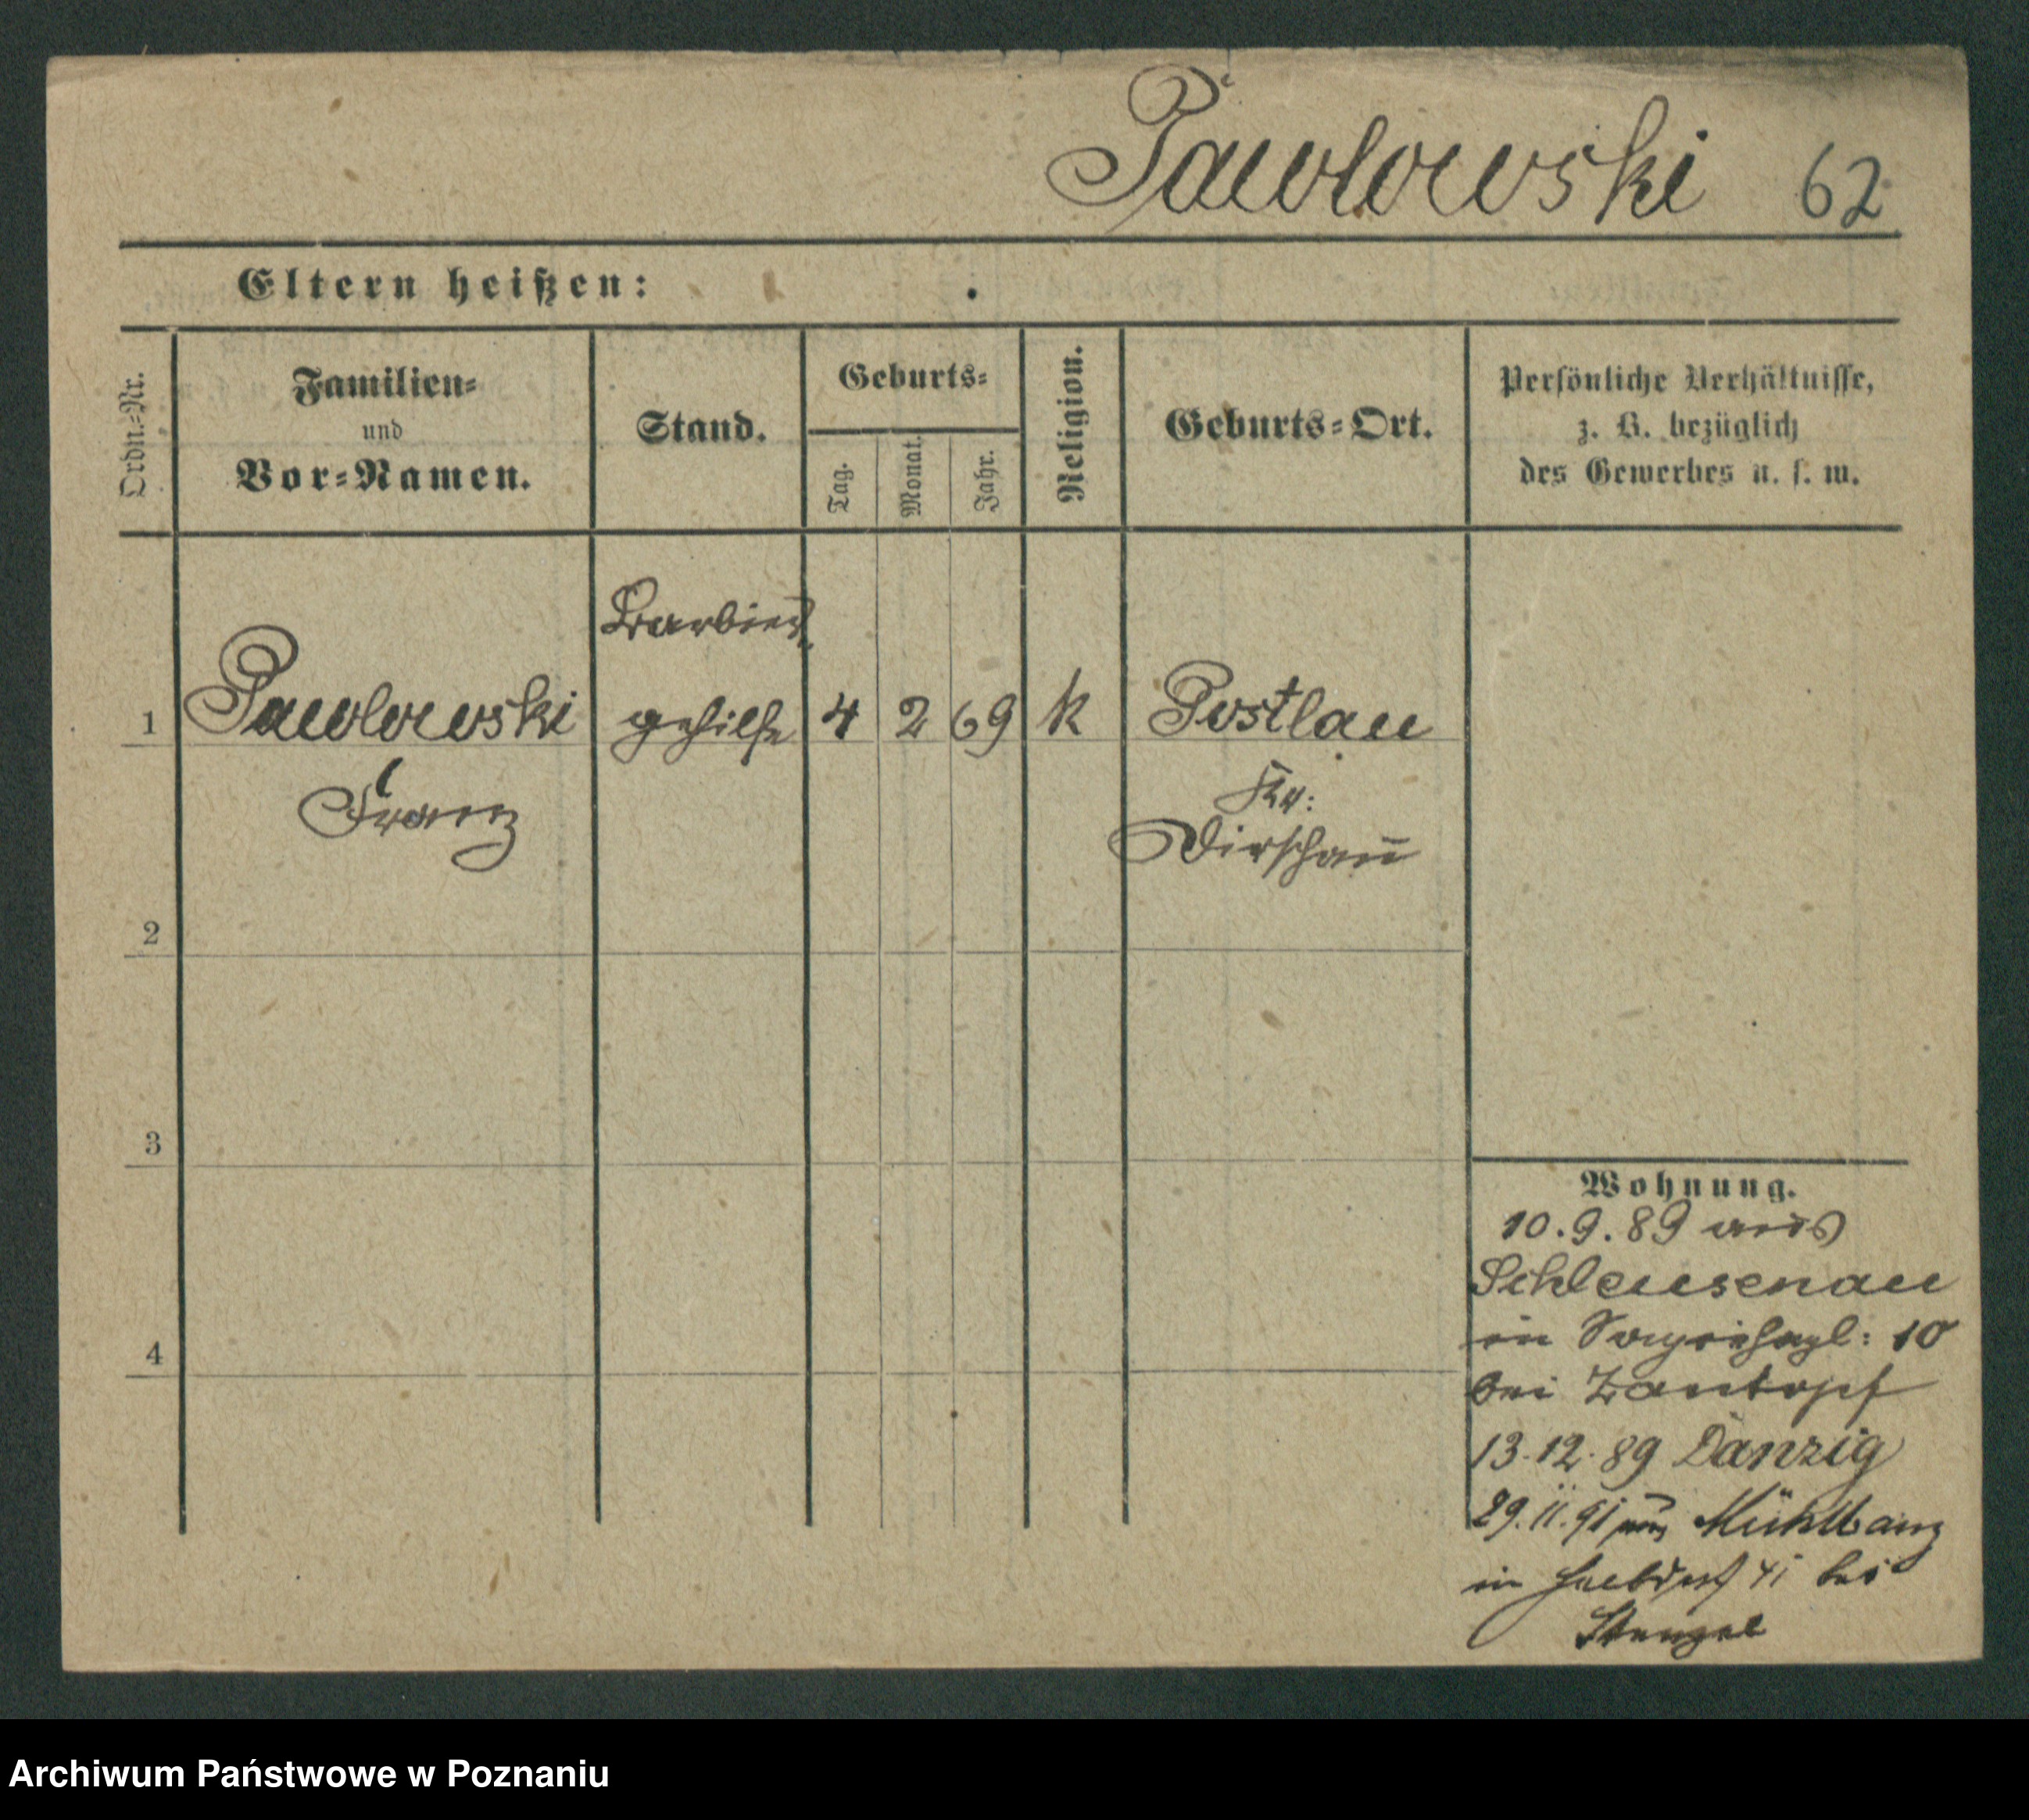 Pawlowski 62
Eltern heißen:
Ordn.-Nr.
Familien-
und
Vor-Namen.
Stand.
Geburts-
Tag.
Monat.
Jahr.
Religion.
Geburts-Ort.
Persönliche Verhältnisse,
z. B. bezüglich
des Gewerbes u. s. w.
Barbier
1 Pawlowski gehilfe 4 2 69 k Postlau
Franz Kr:
Dirschau
2
3
4
Wohnung.
10.9.89 aus
Schleusenau
in 10
bei
13.12.89 Danzig
29.11.91 aus Mühlbanz
in 41 bei
Stenzel
Archiwum Państwowe w Poznaniu